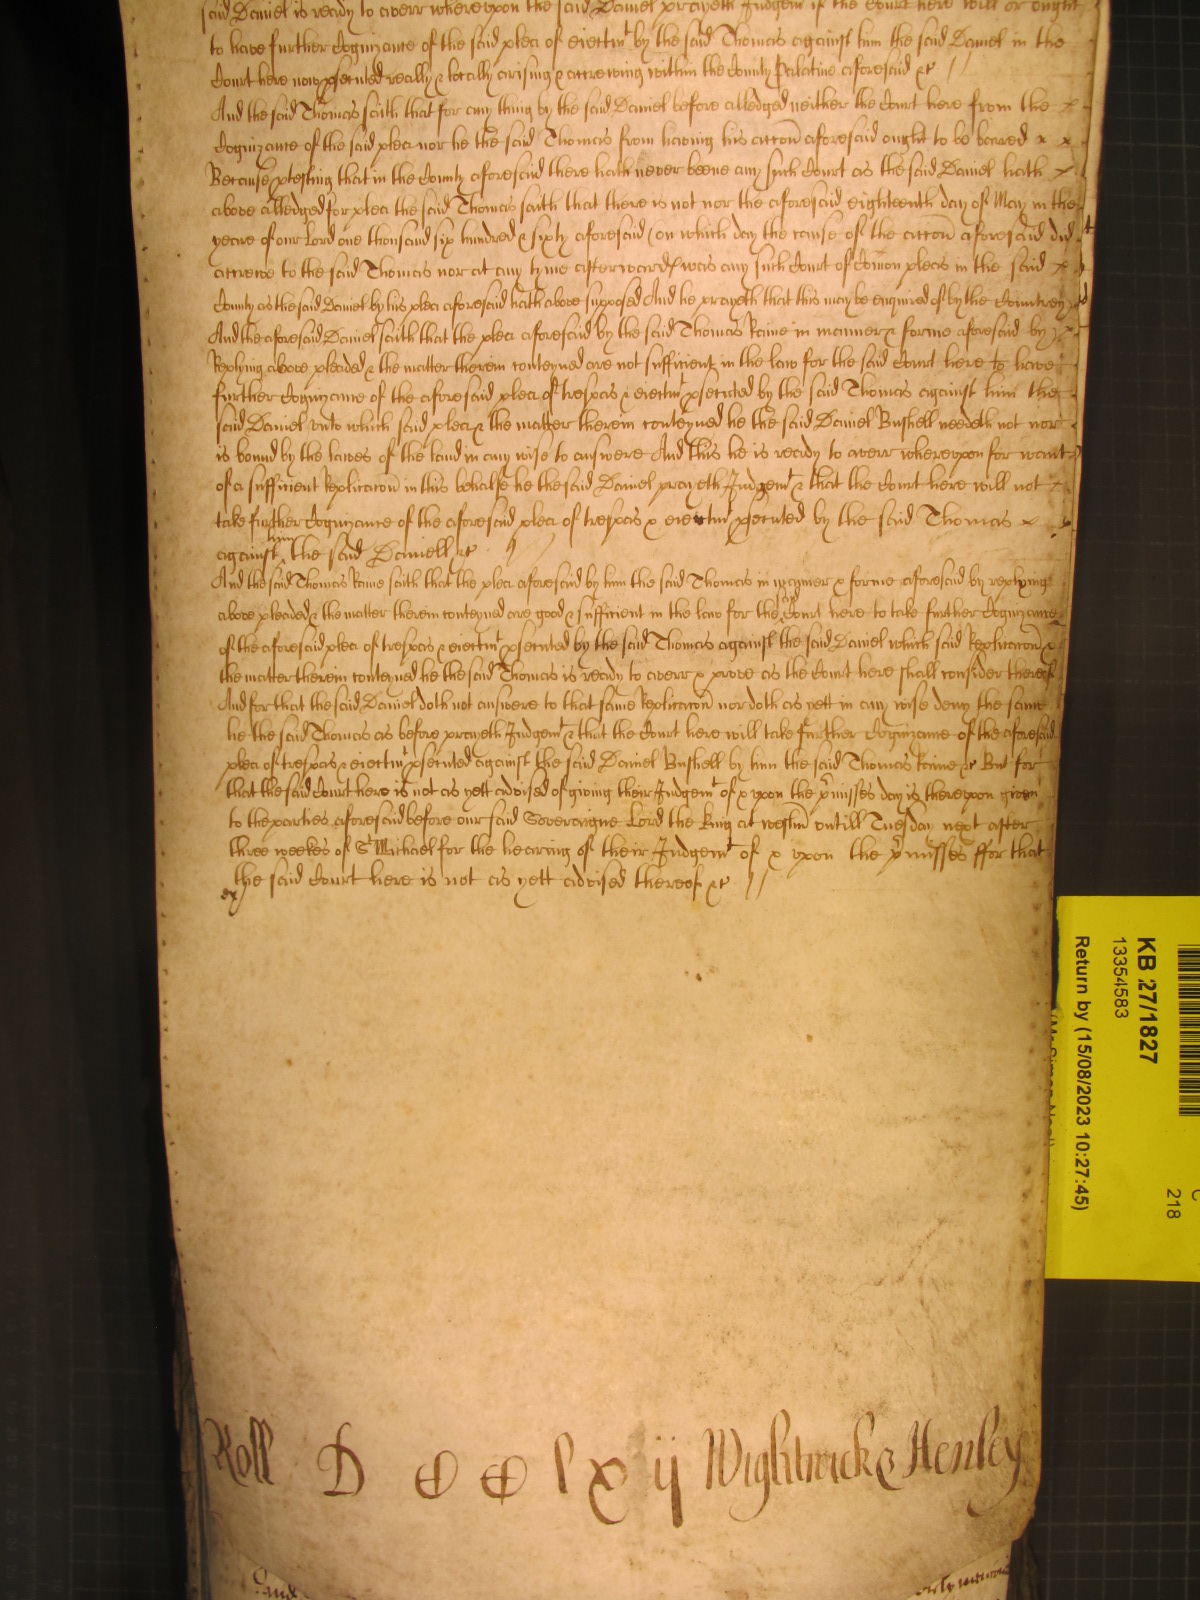 said Daniel is ready to averr whereupon the said Daniel prayeth Judgemt if the Court here will or ought
to have further Cognizance of the said plea of eiectmt by the said Thomas against him the said Daniel in the
Court here now psecuted really & locally arising & accrewing within the County Palatine aforesaid &c //
And the said Thomas saith that for any thing by the said Daniel before alledged neither the Court here from the x
Cognizance of the said plea nor he the said Thomas from haveing his accon aforesaid ought to be barred x x
Because ptesting that in the County aforesaid there hath never beene any such Court as the said Daniel hath x
above alledged for plea the said Thomas saith that there is not nor the aforesaid eighteenth day of May in the
yeare of our Lord one thousand six hundred & sixty aforesaid (on which day the cause of the accon aforesaid did
accrewe to the said Thomas nor at any tyme afterwards was any such Court of Comon pleas in the said x
County as the said Daniel by his plea aforesaid hath above supposed And he prayeth that this may be enquired of by the Countrey
And the aforesaid Daniel saith that the plea aforesaid by the said Thomas Raine in manner & forme aforesaid by x
Replying above pleaded & the matter therein conteyned are not sufficient in the law for the said Court here to have
further Cognizance of the aforesaid plea of trespas & eiectmt psecuted by the said Thomas against him the
said Daniel unto which said plea & the matter therein conteyned he the said Daniel Bushell needeth not nor
is bound by the lawes of the land in any wise to answere And this he is ready to averr whereupon for want
of a sufficient Replicacon in this behalfe he the said Daniel prayeth Judgemt & that the Court here will not x
take further Cognizance of the aforesaid plea of trespas & eiectmt psecuted by the said Thomas x
against him the said Daniell &c //
And the said Thomas Raine saith that the plea aforesaid by him the said Thomas in manner & forme aforesaid by replying
above pleaded & the matter therein conteyned are good & sufficient in the law for the said Court here to take further Cognizance
of the aforesaid plea of trespas & eiectmt psecuted by the said Thomas against the said Daniel which said Replicacon &
the matter therein conteyned he the said Thomas is ready to averr & prove as the Court here shall consider thereof
And for that the said Daniel doth not answere to that same Replicacon nor doth as yett in any wise deny the same
he the said Thomas as before prayeth Judgemt & that the Court here will take further Cognizance of the aforesaid
plea of trespas & eiectmt psecuted against the said Daniel Bushell by him the said Thomas Raine &c But for
that the said Court here is not as yett advised of giving their Judgemt of & upon the pmisses day is thereupon given
to the parties aforesaid before our said Soveraigne Lord the King at Westm untill Tuesday next after
three weekes of St Michael for the hearing of their Judgemt of & upon the pmisses ffor that
the said Court here is not as yett advised thereof &c //
ex
Roll D CC lx ij Wightwick & Henley
KB 27/1827
13354583
Return by (15/08/2023 10:27:45)
218